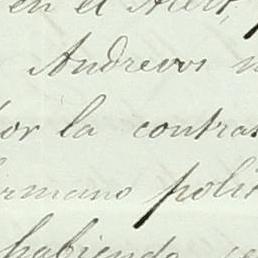 en el Acert,
Andrevos n
or la contras
ermano polit
habiendo se